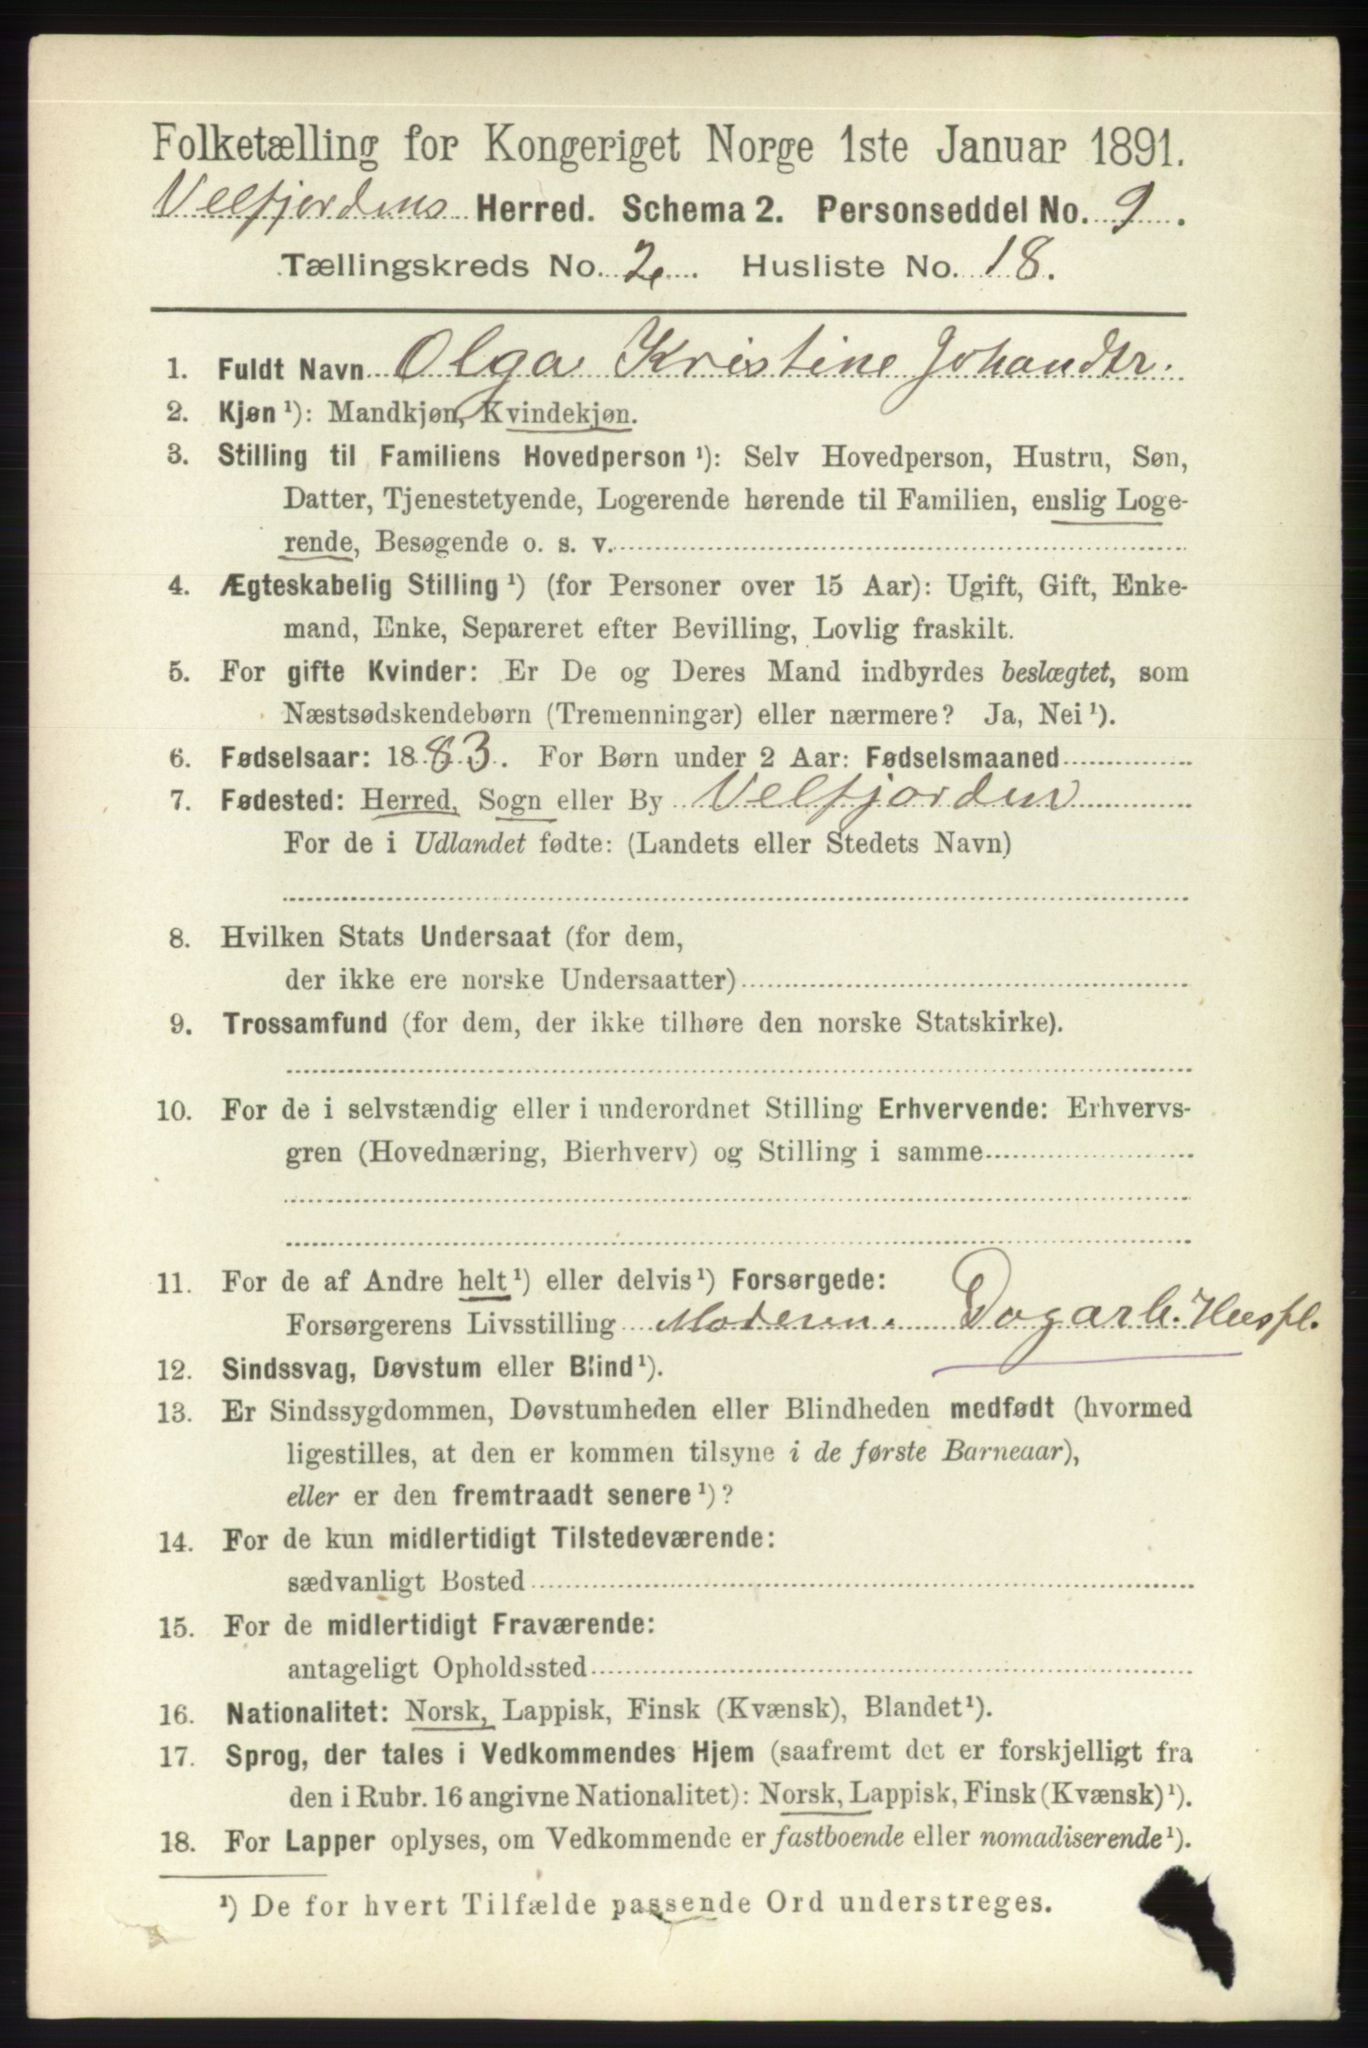 Folketælling for Kongeriget Norge 1ste Januar 1891.
Velfjordens Herred. Schema 2. Personseddel No. 9.
Tællingskreds No. 2. Husliste No. 18.
1. Fuldt Navn Olga Kristine Johandtr.
2. Kjøn ¹): Mandkjøn, Kvindekjøn.
3. Stilling til Familiens Hovedperson ¹): Selv Hovedperson, Hustru, Søn,
Datter, Tjenestetyende, Logerende hørende til Familien, enslig Loge-
rende, Besøgende o. s. v.
4. Ægteskabelig Stilling ¹) (for Personer over 15 Aar): Ugift, Gift, Enke-
mand, Enke, Separeret efter Bevilling, Lovlig fraskilt.
5. For gifte Kvinder: Er De og Deres Mand indbyrdes beslægtet, som
Næstsødskendebørn (Tremenninger) eller nærmere? Ja, Nei ¹).
6. Fødselsaar: 1883. For Børn under 2 Aar: Fødselsmaaned
7. Fødested: Herred, Sogn eller By Velfjorden
For de i Udlandet fødte: (Landets eller Stedets Navn)
8. Hvilken Stats Undersaat (for dem,
der ikke ere norske Undersaatter)
9. Trossamfund (for dem, der ikke tilhøre den norske Statskirke).
10. For de i selvstændig eller i underordnet Stilling Erhvervende: Erhvervs-
gren (Hovednæring, Bierhverv) og Stilling i samme
11. For de af Andre helt ¹) eller delvis ¹) Forsørgede:
Forsørgerens Livsstilling Moderen. Dagarb. Huspl.
12. Sindssvag, Døvstum eller Blind ¹).
13. Er Sindssygdommen, Døvstumheden eller Blindheden medfødt (hvormed
ligestilles, at den er kommen tilsyne i de første Barneaar),
eller er den fremtraadt senere ¹)?
14. For de kun midlertidigt Tilstedeværende:
sædvanligt Bosted
15. For de midlertidigt Fraværende:
antageligt Opholdssted
16. Nationalitet: Norsk, Lappisk, Finsk (Kvænsk), Blandet ¹).
17. Sprog, der tales i Vedkommendes Hjem (saafremt det er forskjelligt fra
den i Rubr. 16 angivne Nationalitet): Norsk, Lappisk, Finsk (Kvænsk) ¹).
18. For Lapper oplyses, om Vedkommende er fastboende eller nomadiserende ¹).
¹) De for hvert Tilfælde passende Ord understreges.